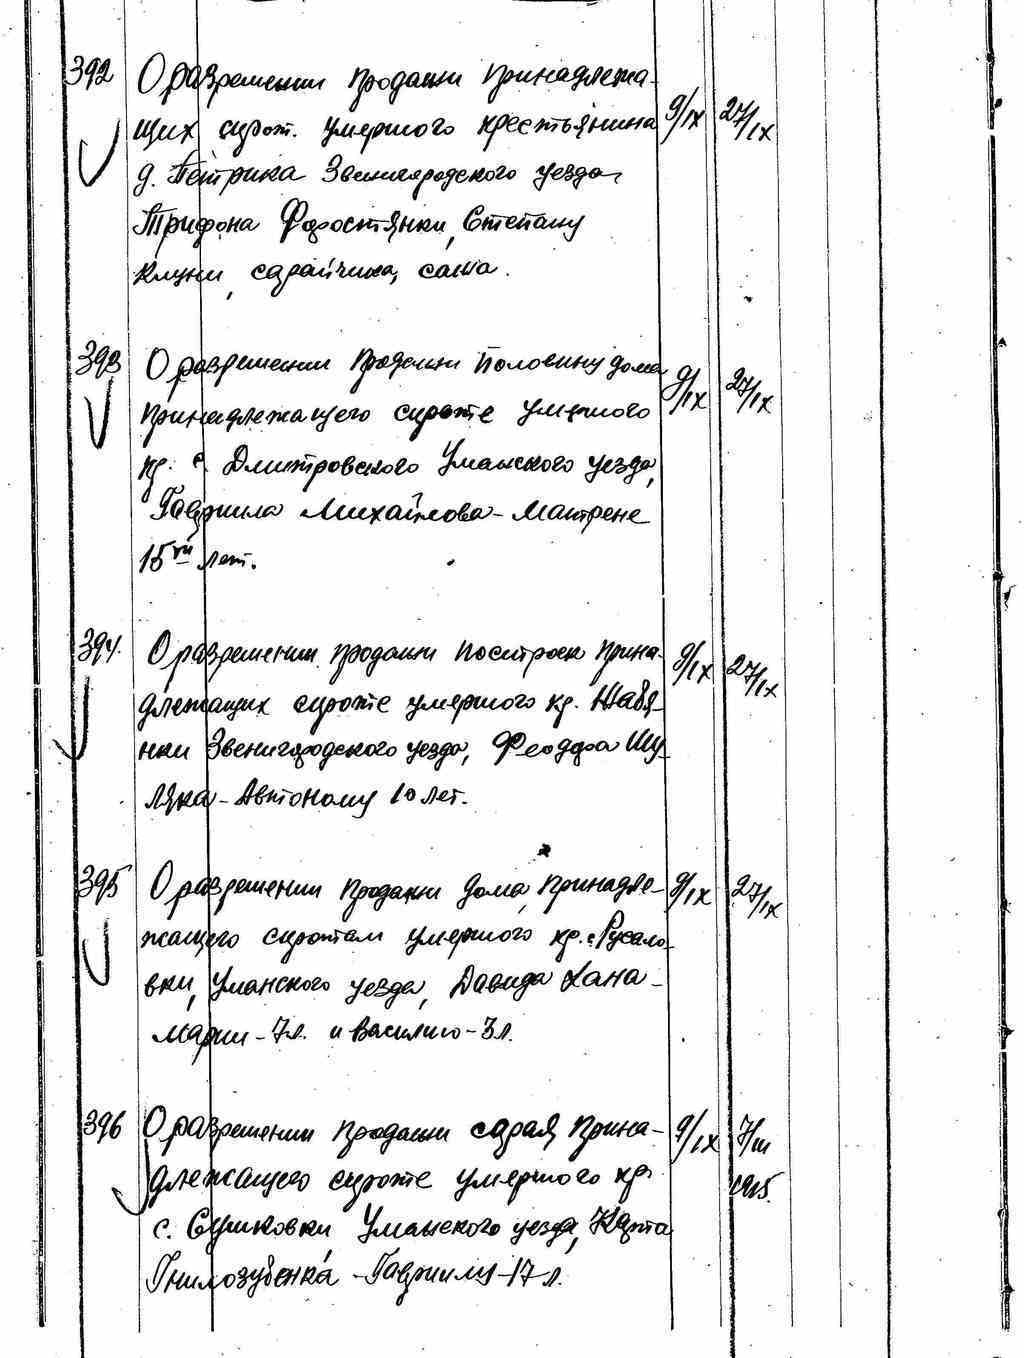 392 О разрешении продажи принадлежа-
щих сирот. умершого крестьянина 9/IX 27/IX
д. Петрика Звенигородского уезда
Трифона Форостянки, Степану
клуни, сарайчика, сажа.
393 О разрешении продажи половину дома
принадлежащего сироте умершого 9/IX 27/IX
кр. с. Дмитровского Уманского уезда,
Гавриила Михайлова - Матрене
15ти лет.
394. О разрешении продажи построек прина- 9/IX 27/IX
длежащих сироте умершого кр. Жабя-
нки Звенигородского уезда, Феодора Шу-
ляка - Автоному 10 лет.
395 О разрешении продажи дома, принадле- 9/IX 27/IX
жащего сиротам умершого кр. с. Русало-
вки, Уманского уезда, Давида Хана -
Марии - 7 л. и Василию - 3 л.
396 О разрешении продажи сарая, прина- 9/IX 7/III
длежащего сироте умершого кр. 1915.
с. Сушковки Уманского уезда, Карпа
Гнилозубенка - Гавриилу - 17 л.